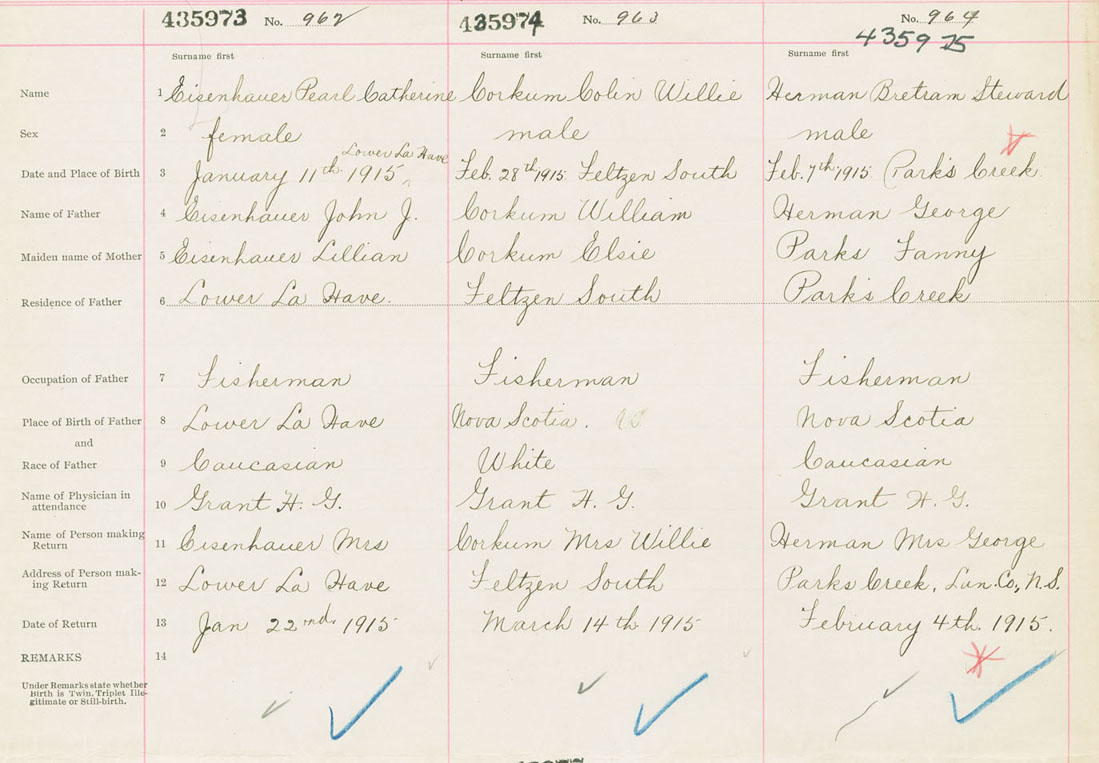 435973 No. 962 435974 No. 963 No. 964
435975
Surname first Surname first Surname first
Name 1 Eisenhauer Pearl Catherine Corkum Colin Willie Herman Bretram Steward
Sex 2 female male male
Lower La Have
Date and Place of Birth 3 January 11th 1915 Feb. 28th 1915. Feltzen South Feb. 7th 1915. Park's Creek.
Name of Father 4 Eisenhauer John J. Corkum William Herman George
Maiden name of Mother 5 Eisenhauer Lillian Corkum Elsie Parks Fanny
Residence of Father 6 Lower La Have. Feltzen South Park's Creek
Occupation of Father 7 Fisherman Fisherman Fisherman
Place of Birth of Father 8 Lower La Have Nova Scotia. Nova Scotia
and
Race of Father 9 Caucasian White Caucasian
Name of Physician in
attendance 10 Grant H. G. Grant H. G. Grant H. G.
Name of Person making
Return 11 Eisenhauer Mrs Corkum Mrs Willie Herman Mrs George
Address of Person mak-
ing Return 12 Lower La Have Feltzen South Parks Creek, Lun. Co., N.S.
Date of Return 13 Jan 22nd. 1915 March 14th. 1915 February 4th. 1915.
REMARKS 14
Under Remarks state whether
Birth is Twin, Triplet Ille-
gitimate or Still-birth.